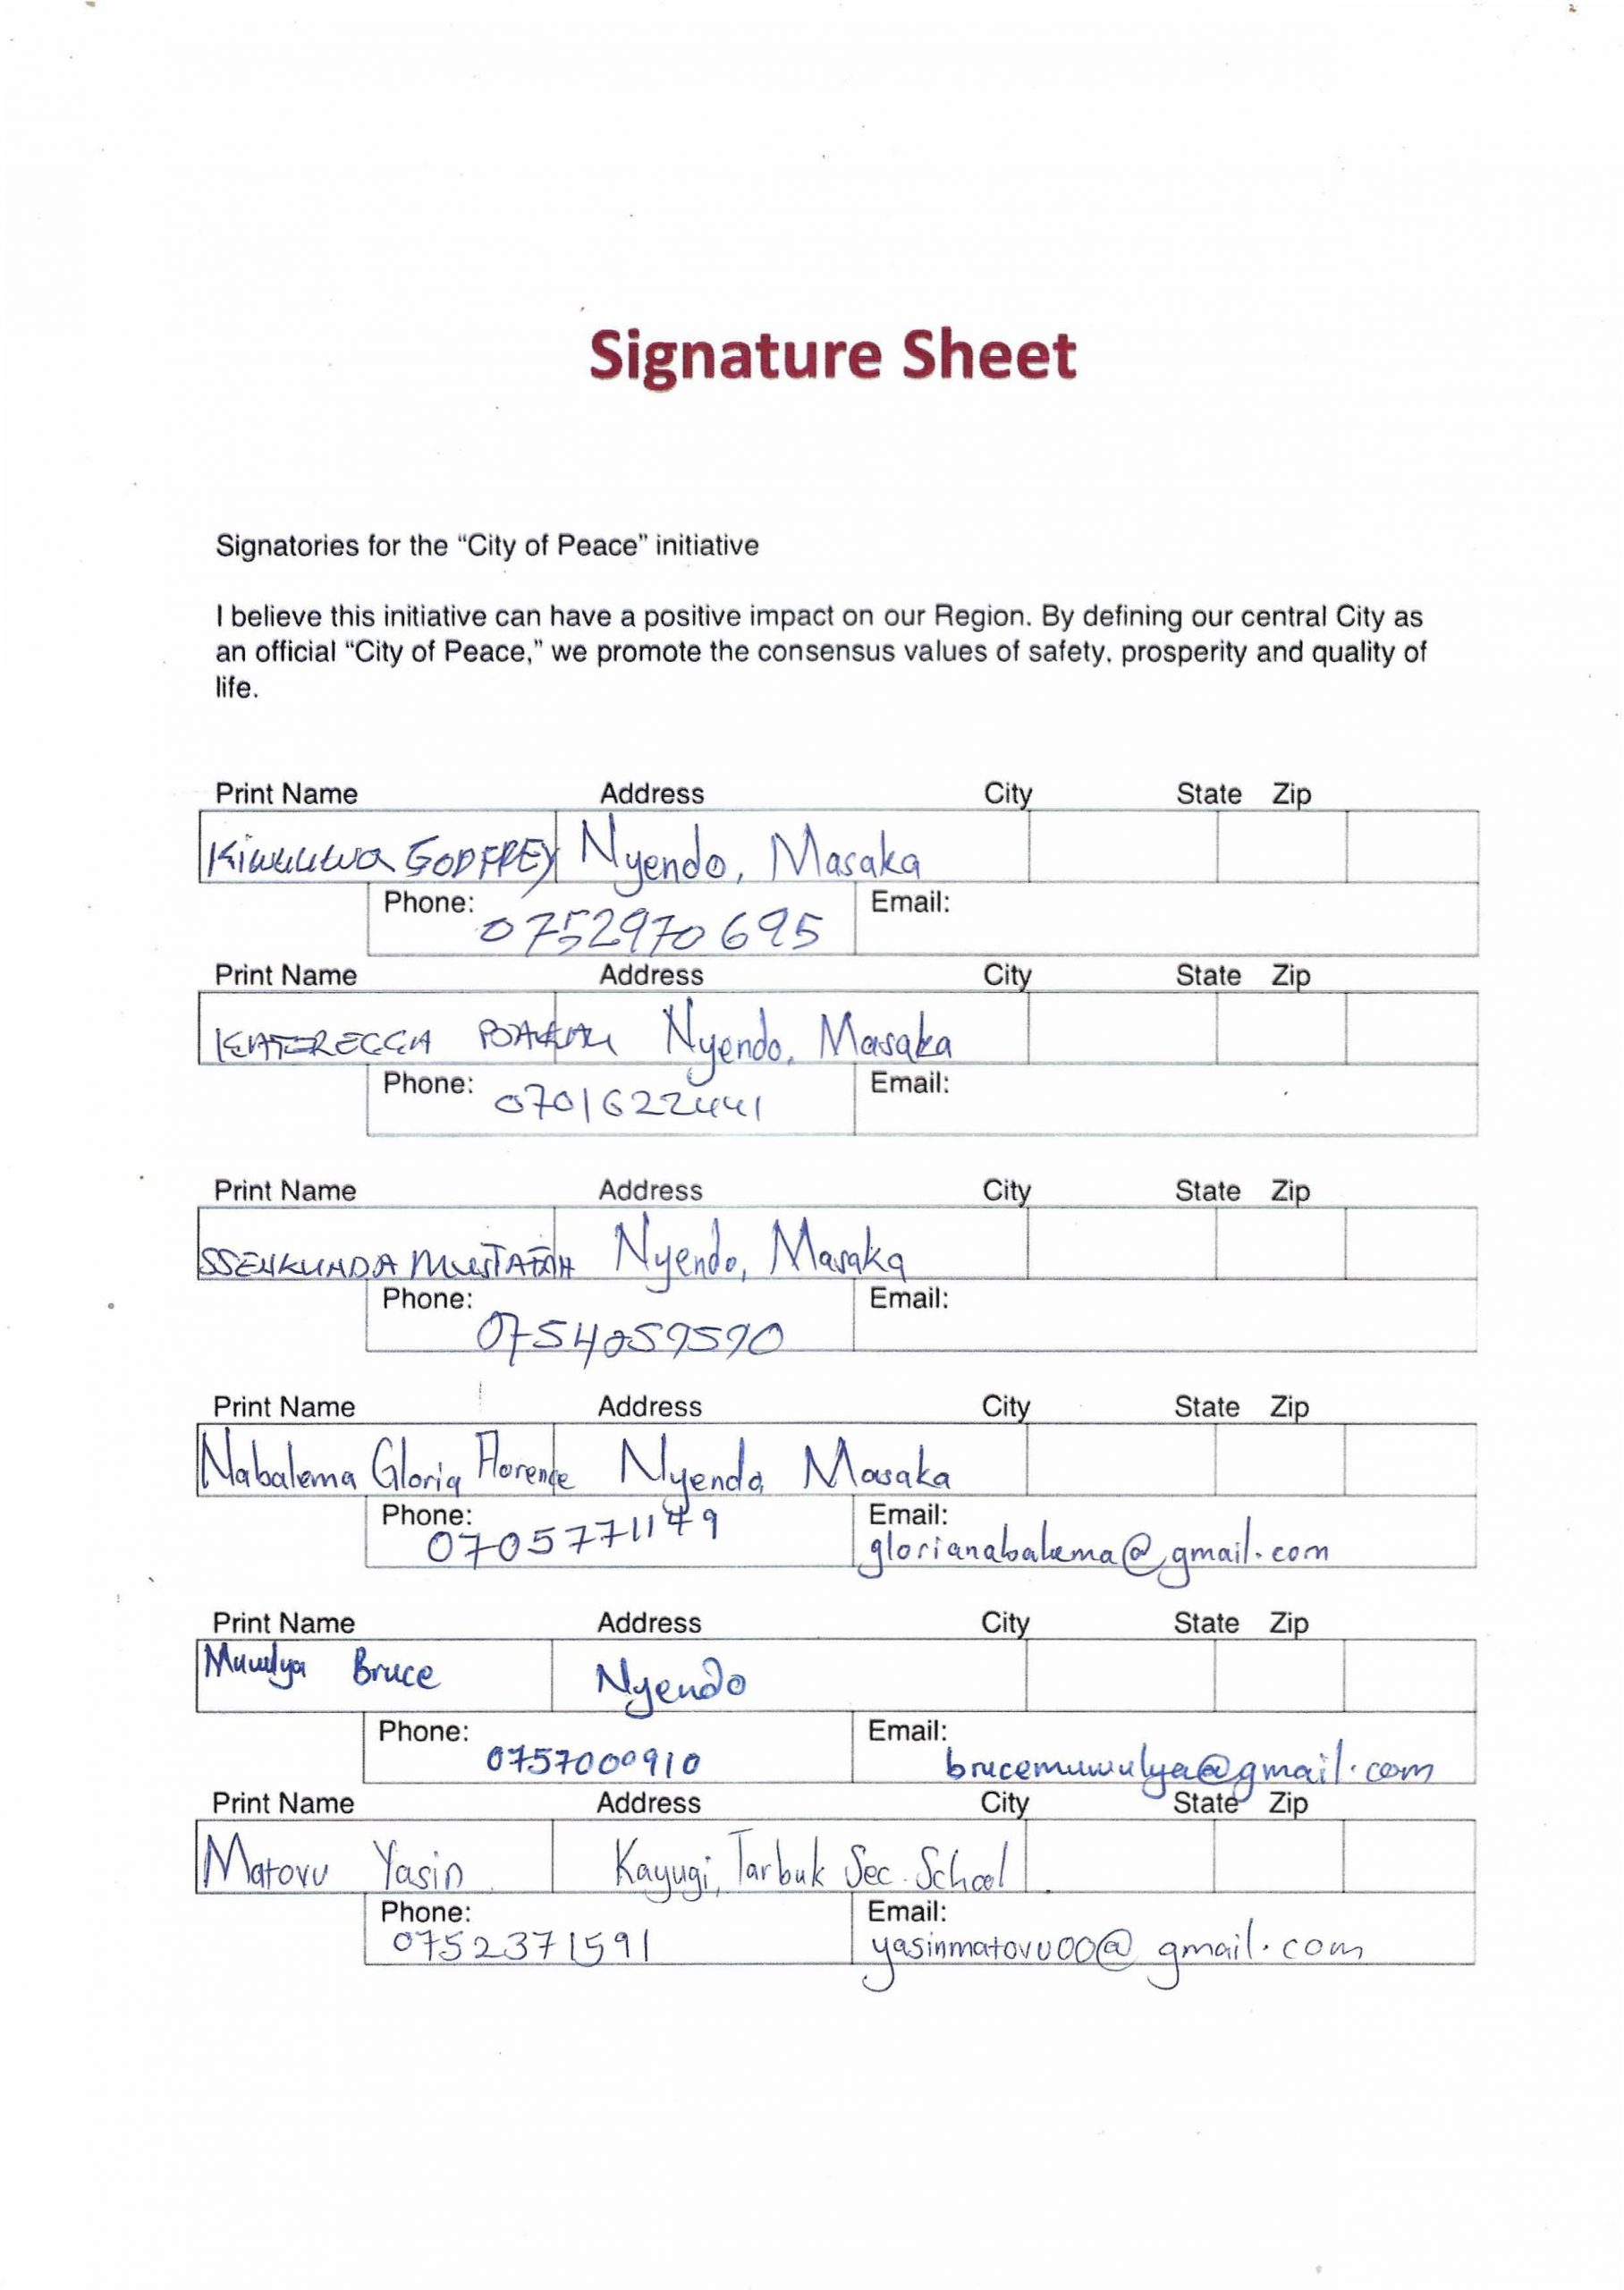 Signature Sheet
Signatories for the “City of Peace” initiative
I believe this initiative can have a positive impact on our Region. By defining our central City as
an official “City of Peace,” we promote the consensus values of safety, prosperity and quality of
life.
Print Name Address City State Zip
GODFREY Nyendo, Masaka
Phone: 0752970695 Email:
Print Name Address City State Zip
KATEREGGA Nyendo, Masaka
Phone: 0701622441 Email:
Print Name Address City State Zip
SSENKUNDA Nyendo, Masaka
Phone: Email:
Print Name Address City State Zip
Nabalema Gloria Florence Nyendo, Masaka
Phone: 0705771179 Email: glorianabalema@gmail.com
Print Name Address City State Zip
Muwulya Bruce Nyendo
Phone: 0757000910 Email: brucemuwulya@gmail.com
Print Name Address City State Zip
Matovu Yasin Kayugi, Tarbuk Sec. School
Phone: 0752371591 Email: yasinmatovu00@gmail.com